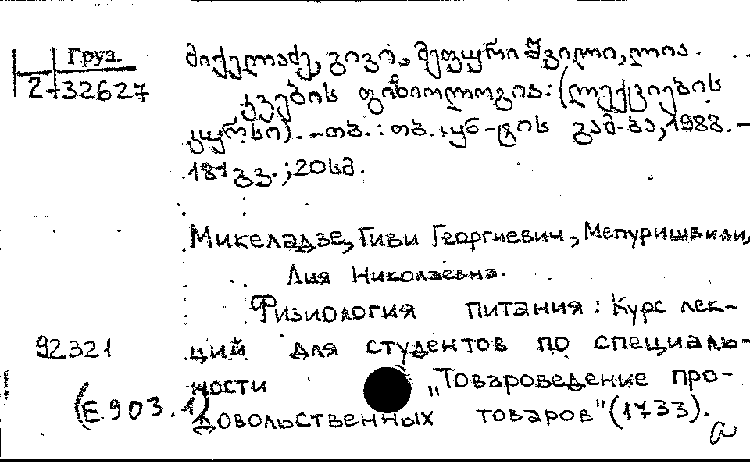 Груз.
2-32627
მიქელაძე, გივი., მეფურიშვილი, ლია.
კვების ფიზიოლოგია: (ლექციების
კურსი). -თბ.: თბ. უნ-ტის გამ-ბა, 1988. -
181 გვ.; 20 სმ.
Микеладзе, Гиви Георгиевич, Мепуришвили,
Лия Николаевна.
Физиология питания: Курс лек-
92321 ций для студентов по специаль-
ности „Товароведение про-
(Е.903.1) довольственных товаров" (1733).